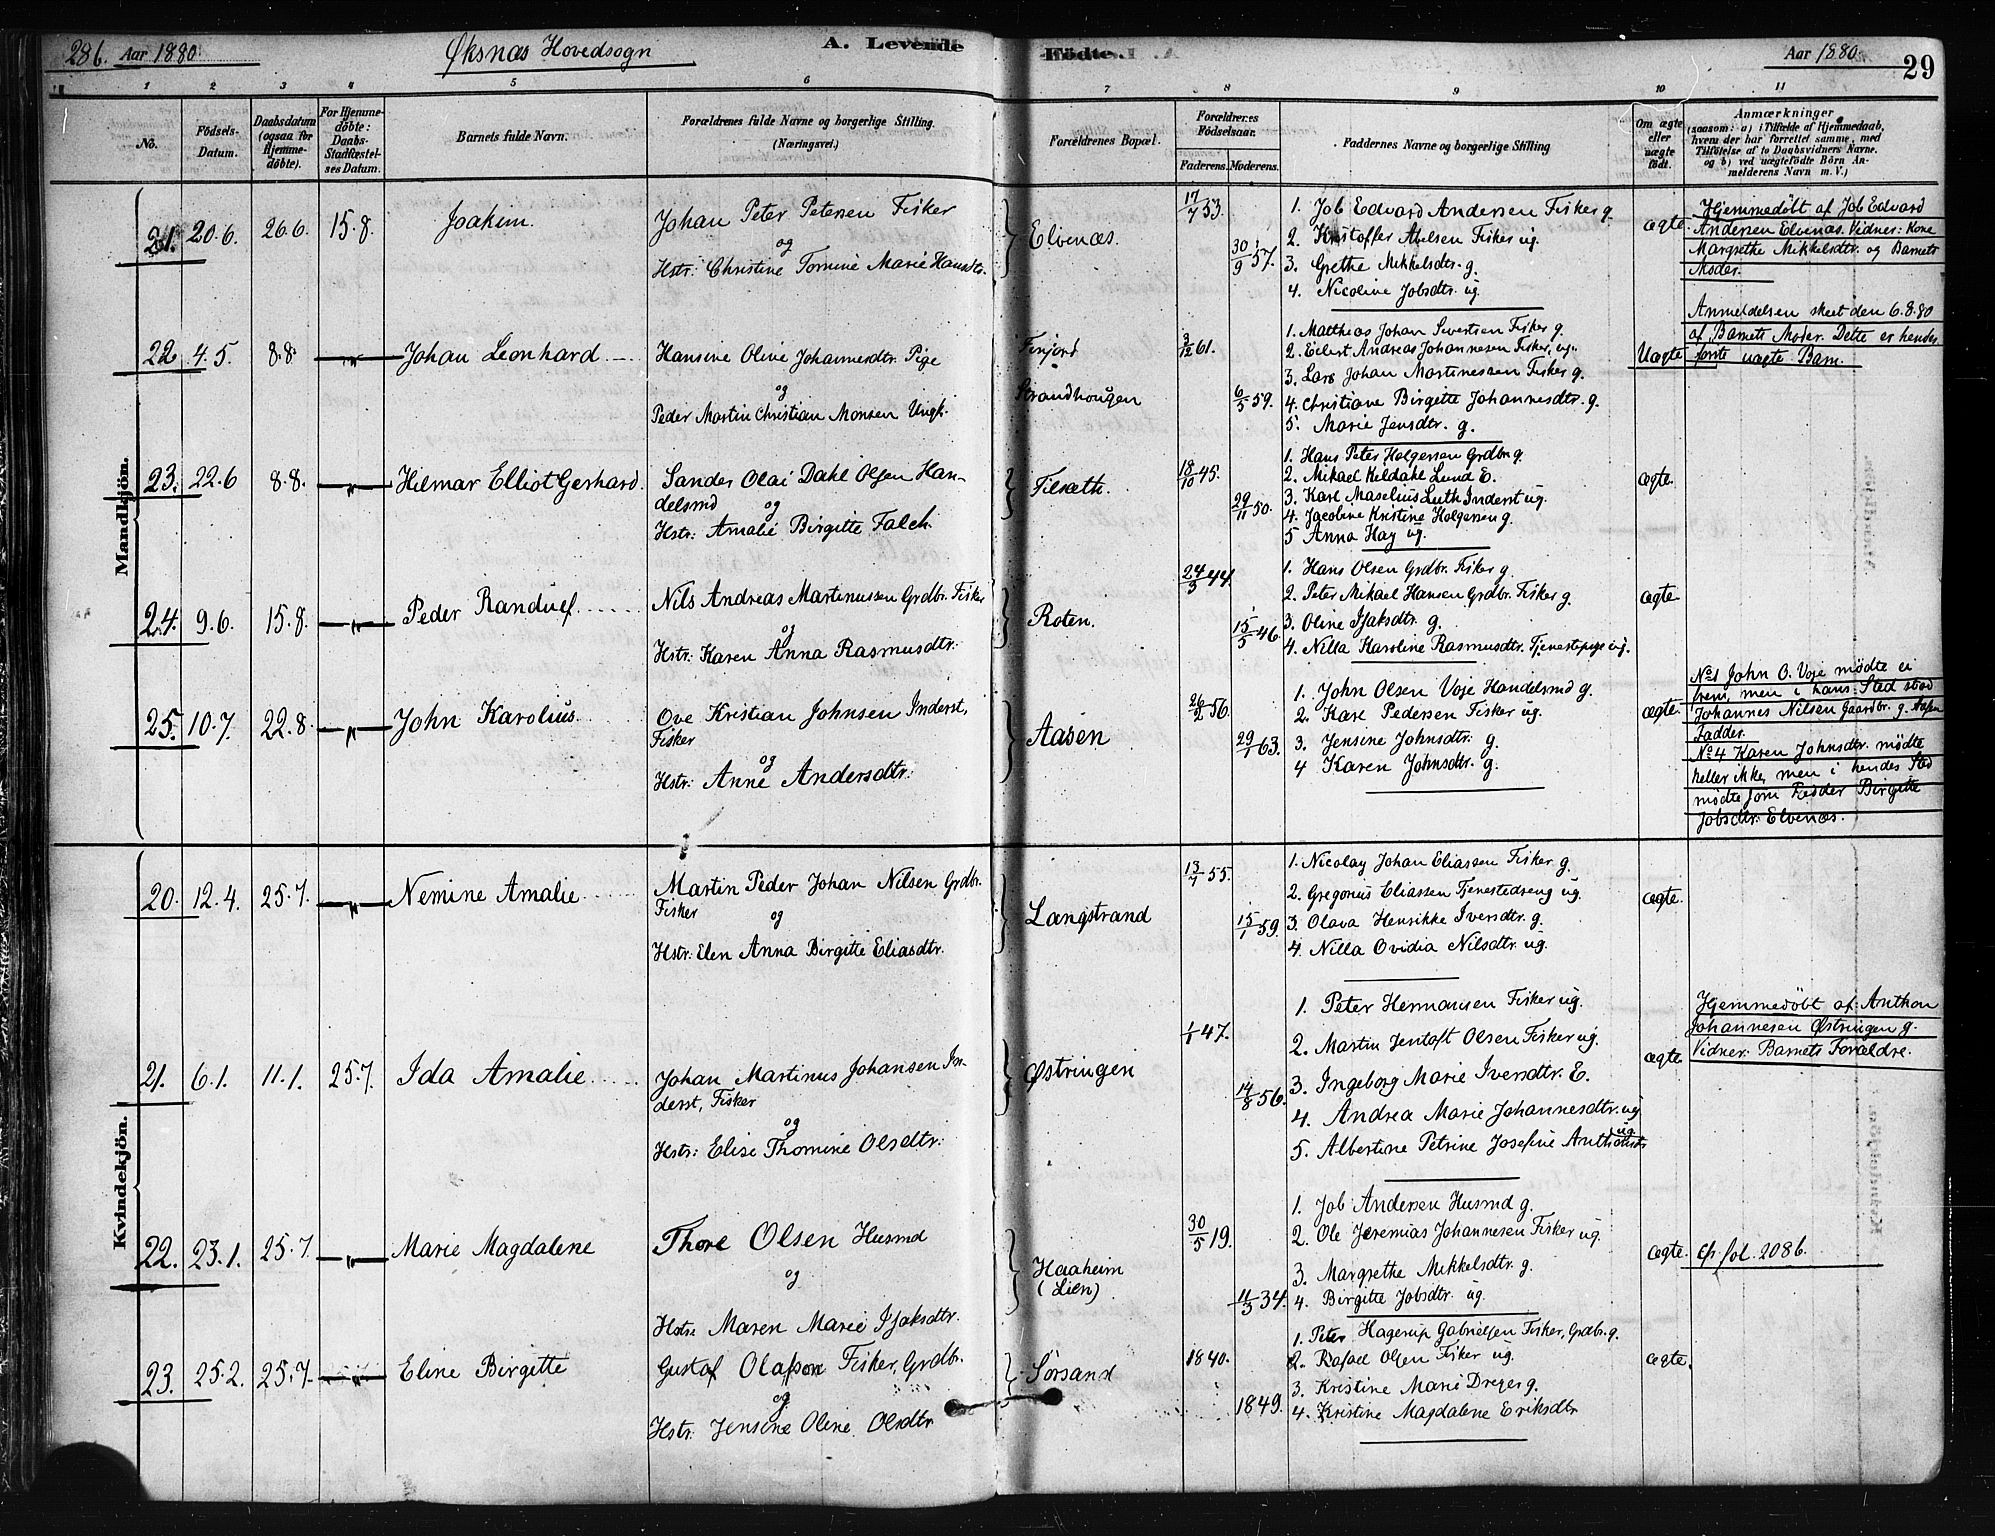 286. Aar 1880. Øksnæs Hovedsogn A. Levende Födte. Aar 1880. 29
1 2 3 4 5 6 7 8 9 10 11
No.
Födsels-Datum.
Daabsdatum (ogsaa for Hjemme-döbte).
For Hjemme-döbte: Daabs-Stadfæstel-ses Datum.
Barnets fulde Navn.
Forældrenes fulde Navne og borgerlige Stilling. (Næringsvei.)
Forældrenes Bopæl.
Forældrenes Födselsaar.
Faderens. Moderens.
Faddernes Navne og borgerlige Stilling
Om ægte eller uægte födt.
Anmærkninger
(saasom: a) i Tilfælde af Hjemmedaab,
hvem der har forrettet samme, med
Tilföielse af to Daabsvidners Navne.
og b) ved uægtefödte Börn An-
melderens Navn m. V.)
Mandkjön.
21. 20.6. 26.6. 15.8. Joakim. Johan Peter Petersen Fisker
og
Hstr: Christine Tomine Marie Hansdtr.
Elvenæs. 17/7 53. 30/9 57.
1. Job Edvard Andersen Fisker g.
2. Kristoffer Abelsen Fisker ug.
3. Grethe Mikkelsdtr. g.
4. Nicoline Jobsdtr. ug.
ægte
Hjemmedøbt af Job Edvard
Andersen Elvenæs. Vidner: Kone
Margrethe Mikkelsdtr. og Barnets
Moder.
22. 4.5. 8.8. —"— Johan Leonhard Hansine Olive Johannesdtr. Pige
og
Peder Martin Christian Monsen Ungk.
Finjord
Strandhougen 3/12 61. 6/5 59.
1. Matthias Johan Sivertsen Fisker g.
2. Eilert Andreas Johannesen Fisker, ug.
3. Lars Johan Martinessen Fisker g.
4. Christiane Birgitte Johannesdtr. g.
5. Marie Jensdtr. g.
Uægte
Anmeldelsen skeet den 6.8.80
af Barnets Moder. Dette er hendes
første uægte Barn.
23. 22.6 8.8. —"— Hilmar Elliot Gerhard. Sander Olai Dahl Olsen Han-
delsmd og
Hstr: Amalie Birgitte Falch.
Tilsæth. 18/10 45. 29/11 50.
1. Hans Peter Holgersen Grdbr g.
2. Mikael Keldahl Lund E.
3. Karl Maselius Luth Inderst ug.
4. Jacobine Kristine Holgersen g.
5 Anna Hay ug.
ægte.
24. 9.6. 15.8. —"— Peder Randulf Nils Andreas Martinussen Grdbr. Fisker
og
Hstr: Karen Anna Rasmusdtr:
Roten. 24/3 44. 15/5 46.
1. Hans Olsen Grdbr. Fisker g.
2. Peter Mikael Hansen Grdbr. Fisker g.
3. Oline Isaksdtr. g.
4. Nilla Karoline Rasmusdtr. Tjenestepige ug.
ægte.
25. 10.7. 22.8. —"— John Karolius. Ove Kristian Johnsen Inderst,
Fisker
og
Hstr: Anne Andersdtr.
Aasen 26/2 56. 29/1 63.
1. John Olsen Voje Handelsmd g.
2. Karl Pedersen Fisker ug.
3. Jensine Johnsdtr. g.
4 Karen Johnsdtr. g.
ægte.
No 1 John O. Voje mødte ei
frem, men i hans Sted stod
Johannes Nilsen Gaardbr. g. Aasen
Fadder.
No 4 Karen Johnsdtr. mødte
heller ikke, men i hendes Sted
mødte som Fadder Birgitte
Jobsdtr: Elvenæs.
Kvindekjön.
20. 12.4. 25.7. —"— Nemine Amalie Martin Peder Johan Nilsen Grdbr.
Fisker
og
Hstr: Elen Anna Birgitte Eliasdtr.
Langstrand 13/7 55. 15/1 59.
1. Nicolay Johan Eliassen Fisker g.
2. Gregorius Eliassen Tjenestedreng ug.
3. Olava Henrikke Iversdtr. g.
4. Nilla Ovidia Nilsdtr. ug.
ægte.
21. 6.1. 11.1. 25.7. Ida Amalie Johan Martinus Johansen In-
derst, Fisker
og
Hstr: Elise Thomine Olsdtr:
Østringen 1/1 47. 14/8 56.
1. Peter Hermansen Fisker ug.
2. Martin Jentoft Olsen Fisker ug.
3. Ingeborg Marie Iversdtr. E.
4. Andrea Marie Johannesdtr. ug
5. Albertine Petrine Josefine Anthonsdtr. ug
ægte
Hjemmedøbt af: Anthon
Johannesen Østringen g.
Vidner: Barnets Forældre.
22. 23.1. 25.7. —"— Marie Magdalene Thore Olsen Husmd
og
Hstr: Maren Marie Isaksdtr.
Haaheim
(Lien) 30/5 19. 11/3 34.
1. Job Andersen Husmd g.
2. Ole Jeremias Johannesen Fisker ug.
3. Margrethe Mikkelsdtr. g.
4. Birgitte Jobsdtr. ug.
ægte. cf. fol. 208b.
23. 25.2. 25.7. —"— Eline Birgitte Gustaf Olafson Fisker, Grdbr.
og
Hstr: Jensine Oline Olsdtr
Sørsand 1840. 1849.
1. Peter Hagerup Gabrielsen Fisker, Grdbr. g.
2. Rafael Olsen Fisker ug.
3. Kristine Marie Dreyer g.
4. Kristine Magdalene Eriksdtr
ægte.